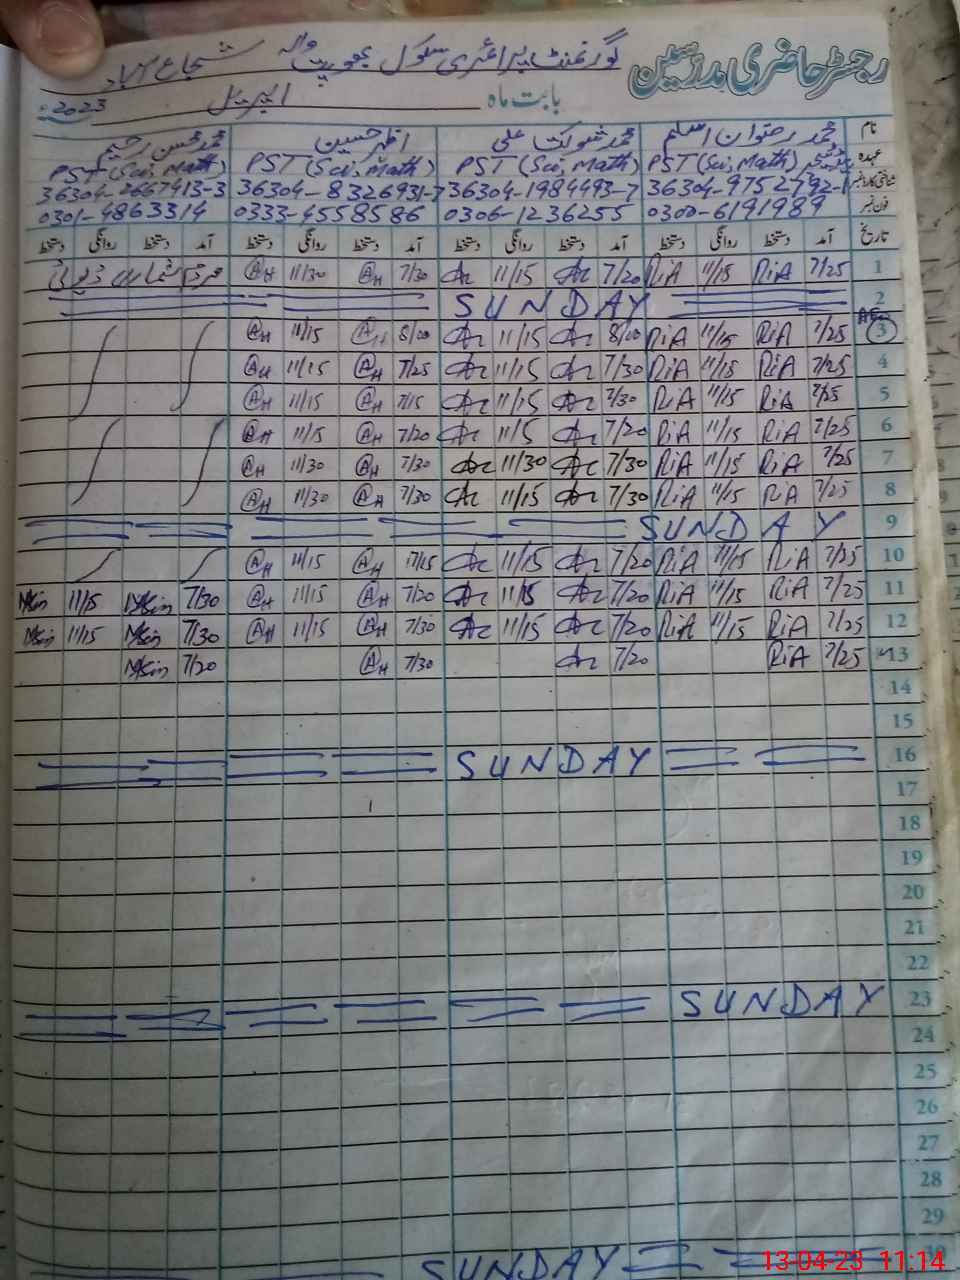 رجسٹر حاضری مدرسین گورنمنٹ پرائمری سکول والہ شجاع آباد
بابت ماہ اپریل 2023
نام محمد رضوان اسلم محمد شوکت علی اظہر حسین محمد محسن رحیم
عہدہ PST (Sci, Math) PST (Sci, Math) PST (Sci, Math) PST (Sci, Math)
شناختی کارڈ نمبر 36304-1984493-7 36304-8326931-7
فون نمبر 0300-6191989 0306-1236255 0333-4558586 0301-4863314
تاریخ آمد دستخط روانگی دستخط آمد دستخط روانگی دستخط آمد دستخط روانگی دستخط آمد دستخط روانگی دستخط
1 7/25 RiA 11/15 RiA 7/20 11/15 7/30 AH 11/30 AH
2 SUNDAY
3 7/25 RiA 11/15 RiA 8/00 11/15 8/00 AH 11/15 AH
4 7/25 RiA 11/15 RiA 7/30 11/15 7/25 AH 11/15 AH
5 7/25 RiA 11/15 RiA 7/30 11/15 7/15 AH 11/15 AH
6 7/25 RiA 11/15 RiA 7/20 11/15 7/20 AH 11/15 AH
7 7/25 RiA 11/15 RiA 7/30 11/30 7/30 AH 11/30 AH
8 7/25 RiA 11/15 RiA 7/30 11/15 7/30 AH 11/30 AH
9 SUNDAY
10 7/25 RiA 11/15 RiA 7/20 11/15 AH 11/15 AH
11 7/25 RiA 11/15 RiA 7/20 11/15 7/20 AH 11/15 AH 7/30 11/15
12 7/25 RiA 11/15 RiA 7/20 11/15 7/30 AH 11/15 AH 7/30 11/15
13 7/25 RiA 7/20 7/30 AH 7/20
14
15
16 SUNDAY
17
18
19
20
21
22
23 SUNDAY
24
25
26
27
28
29
30 SUNDAY
13-04-23 11:14